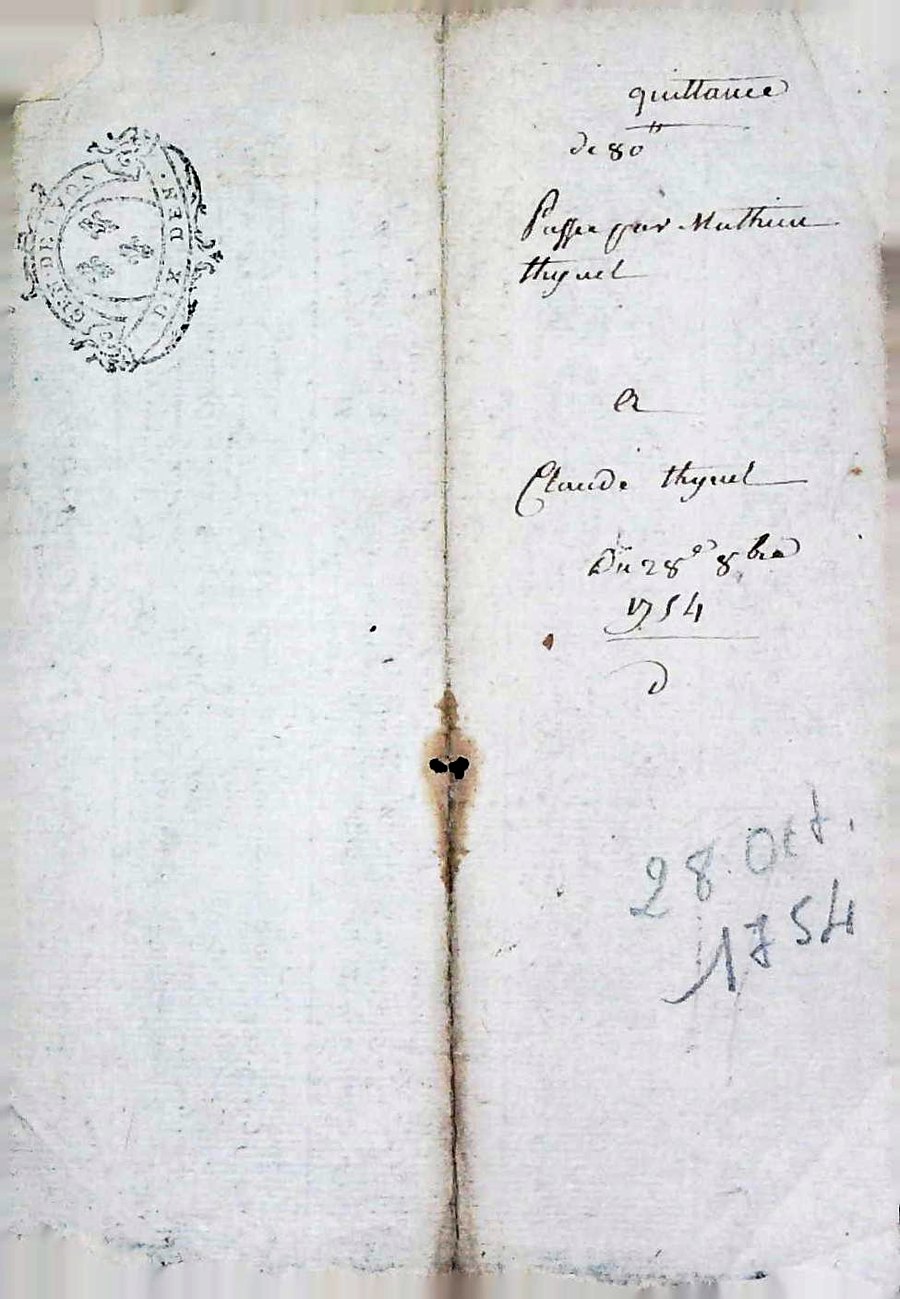 GEN · DE LYON
DIX DEN ·
quittance
de 80 ''
Passee par Mathieu
thynel
a
Claude thynel
Du 28e 8bre
1754
D
28. Oct.
1754